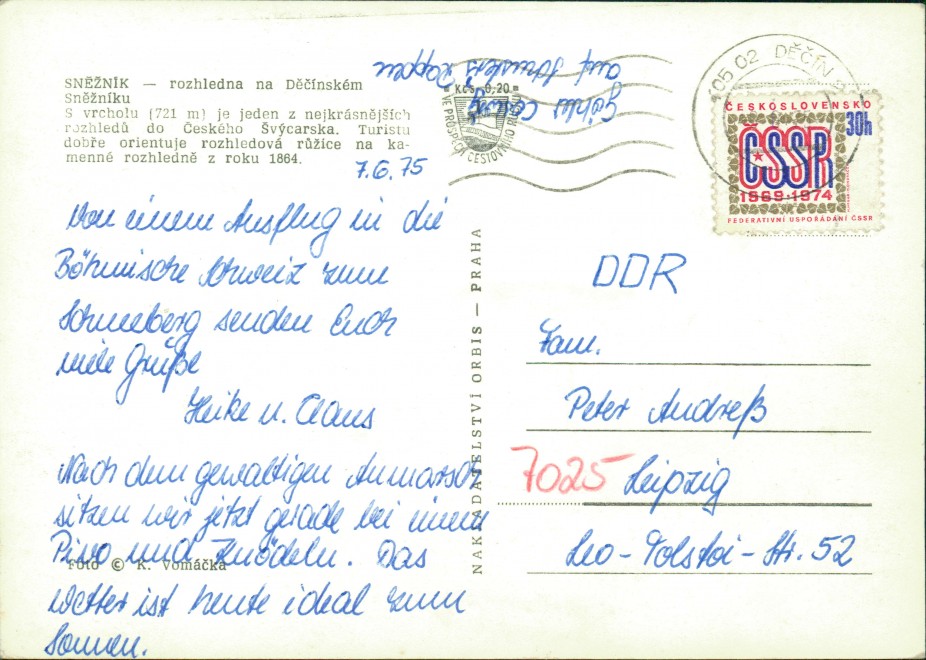 SNĚŽNÍK — rozhledna na Děčínském
Sněžníku
S vrcholu (721 m) je jeden z nejkrásnějších
rozhledů do Českého Švýcarska. Turistu
dobře orientuje rozhledová růžice na ka-
menné rozhledně z roku 1864.
7.6.75
Von einem Ausflug in die
Böhmische Schweiz zum
Schneeberg senden Euch
viele Grüße
Heike u. Claus
Nach dem gewaltigen Anmarsch
sitzen wir jetzt gerade bei einem
Pivo und Knödeln. Das
Wetter ist heute ideal zum
Sonnen.
Foto © K. Vomáčka
auf
Kčs 0,20
NAKLADATELSTVÍ ORBIS — PRAHA
405 02 DĚČÍN
ČESKOSLOVENSKO
30h
ČSSR
1969-1974
FEDERATIVNÍ USPOŘÁDÁNÍ ČSSR
DDR
Fam.
Peter Andreß
7025 Leipzig
Leo-Tolstoi-Str. 52